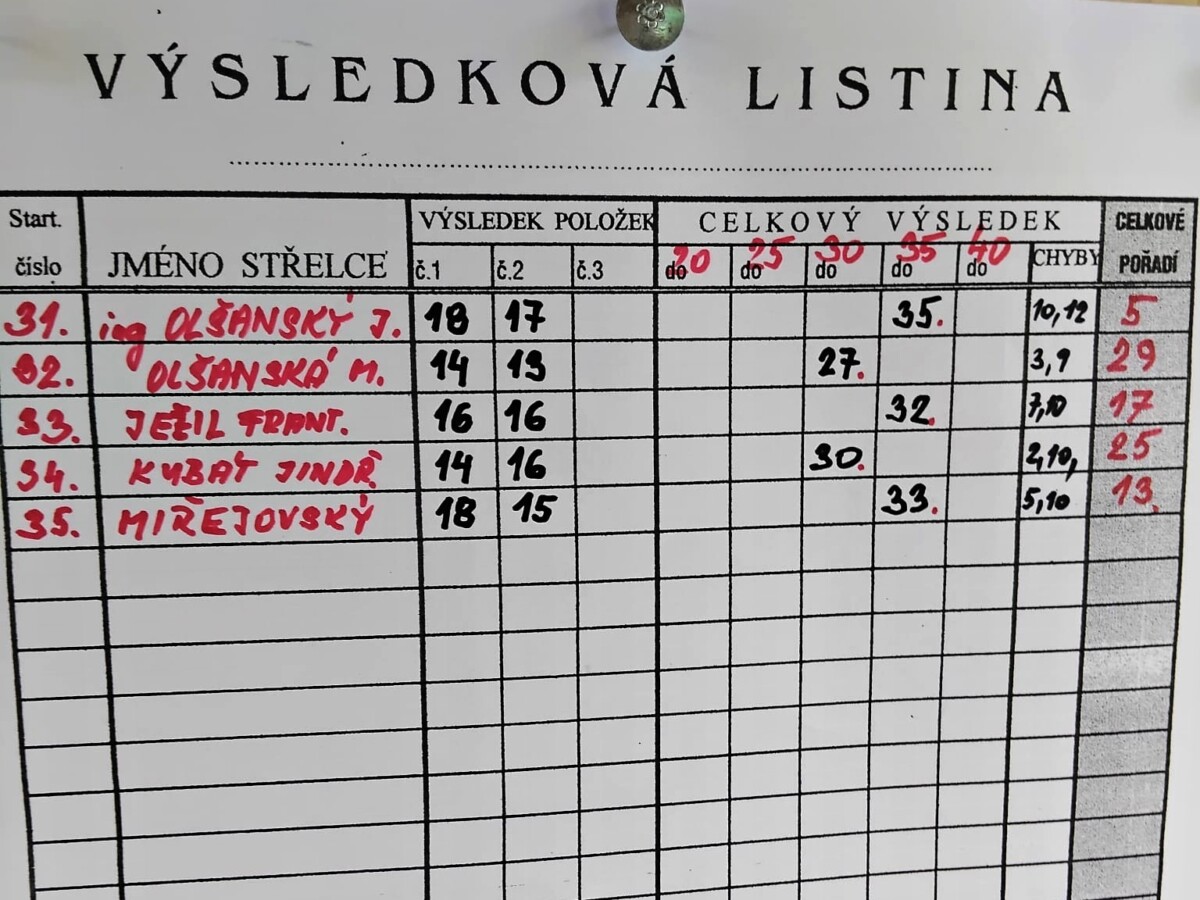 VÝSLEDKOVÁ LISTINA
Start. číslo JMÉNO STŘELCE VÝSLEDEK POLOŽEK CELKOVÝ VÝSLEDEK CELKOVÉ POŘADÍ
č.1 č.2 č.3 do 20 do 25 do 30 do 35 do 40 CHYBY
31. ing OLŠANSKÝ J. 18 17 35. 10,12 5
32. OLŠANSKÁ M. 14 13 27. 3,9 29
33. JEŽIL FRANT. 16 16 32. 7,10 17
34. KUBÁT JINDŘ. 14 16 30. 2,10, 25
35. MIŘEJOVSKÝ 18 15 33. 5,10 13.